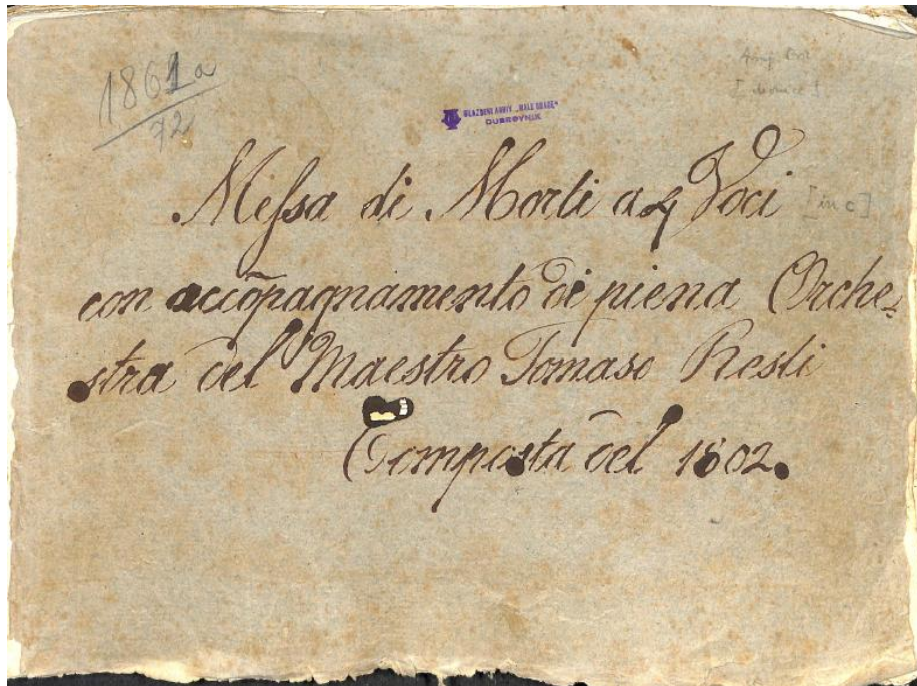 1861a
72
GLAZBENI ARHIV „MALE BRAĆE"
DUBROVNIK
Meſsa di Morti a 4 Voci [in c]
con accõpagnamento di piena Orche-
stra del Maestro Tomaso Resti
Composta del 1802.